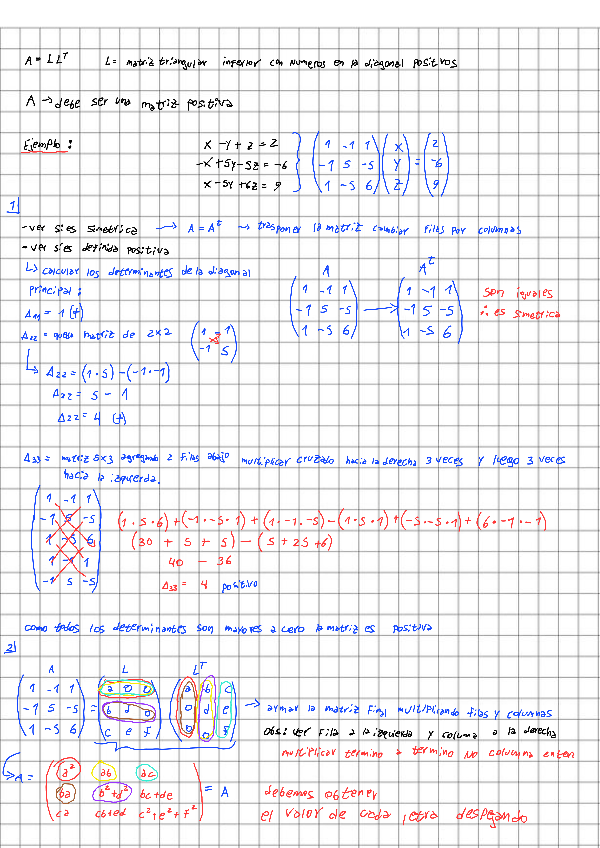 A = L L^T    L = matriz triangular inferior con numeros en la diagonal positivos
A → debe ser una matriz positiva
Ejemplo :
x - y + z = 2
-x + 5y - 5z = -6
x - 5y + 6z = 9
( 1 -1 1 ) ( x ) ( 2 )
( -1 5 -5 ) ( y ) = ( -6 )
( 1 -5 6 ) ( z ) ( 9 )
1|
- ver si es simetrica → A = A^t → trasponer la matriz cambiar filas por columnas
- ver si es definida positiva
↳ calcular los determinantes de la diagonal
principal :
Δ11 = 1 (+)
Δ22 = queda matriz de 2x2
( 1 -1 )
( -1 5 )
↳ Δ22 = (1 · 5) - (-1 · -1)
Δ22 = 5 - 1
Δ22 = 4 (+)
A    A^t
( 1 -1 1 ) ( 1 -1 1 )
( -1 5 -5 ) → ( -1 5 -5 )
( 1 -5 6 ) ( 1 -5 6 )
son iguales
∴ es simetrica
Δ33 = matriz 5x3 agregando 2 filas abajo multiplicar cruzado hacia la derecha 3 veces y luego 3 veces
hacia la izquierda.
1 -1 1
-1 5 -5
1 -5 6
1 -1 1
-1 5 -5
(1 · 5 · 6) + (-1 · -5 · 1) + (1 · -1 · -5) - (1 · 5 · 1) + (-5 · -5 · 1) + (6 · -1 · -1)
(30 + 5 + 5) - (5 + 25 + 6)
40 - 36
Δ33 = 4 positivo
como todos los determinantes son mayores a cero la matriz es positiva
2|
A    L    L^T
( 1 -1 1 ) ( a 0 0 ) ( a b c )
( -1 5 -5 ) = ( b d 0 ) ( 0 d e )
( 1 -5 6 ) ( c e f ) ( 0 0 f )
→ armar la matriz final multiplicando filas y columnas
obs: ver fila a la izquierda y columna a la derecha
multiplicar termino a termino NO columna entera
A = ( a² ab ac )
( ba b²+d² bc+de ) = A
( ca cb+ed c²+e²+f² )
debemos obtener
el valor de cada letra despejando